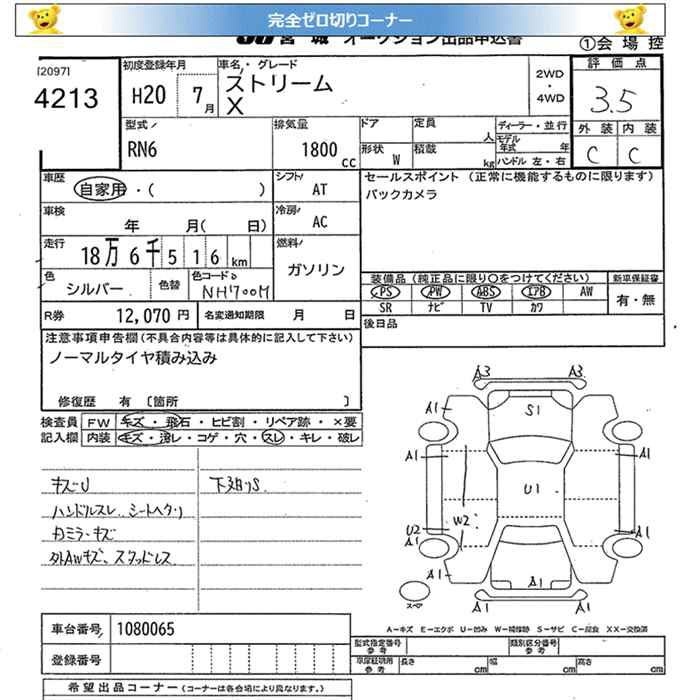 完全ゼロ切りコーナー
宮城 オークション出品申込書 ①会場控
[2097]
4213
初度登録年月 車名・グレード
H20 7月 ストリーム X
2WD・4WD
評価点
3.5
外装 内装
C C
型式 排気量 ドア 定員 人 ディーラー・並行
RN6 1800cc
モデル年式 年
形状 W 積載 kg ハンドル 左・右
車歴 自家用・( )
シフト AT
セールスポイント(正常に機能するものに限ります)
バックカメラ
車検 年 月( 日)
冷房 AC
走行 18万6千516km
燃料 ガソリン
色 シルバー 色替 色コードNo NH700M
装備品(純正品に限り○をつけてください) 新車保証書
PS PW ABS エアB AW 有・無
SR ナビ TV カワ
R券 12,070円 名変通知期限 月 日
後日品
注意事項申告欄(不具合内容等は具体的に記入して下さい)
ノーマルタイヤ積み込み
修復歴 有 〔箇所 〕
検査員 FW キズ・飛石・ヒビ割・リペア跡・×要
記入欄 内装 キズ・汚レ・コゲ・穴・スレ・キレ・破レ
キズU 下廻りS
ハンドルスレ シートヘタリ
内ミラーキズ
外AWキズ、スタッドレス
A3 A3
A1 S1 A1
A1 A1
U1
U2 W2 A1
A1
A1 A1 A1
スペア
A1 A1
A-キズ E-エクボ U-凹み W-補修跡 S-サビ C-腐食 XX-交換済
車台番号 1080065
型式指定番号 参考 類別区分番号 参考
登録番号
車庫証明用 参考 長さ cm 幅 cm 高さ cm
希望出品コーナー(コーナーは各会場により異なります。)